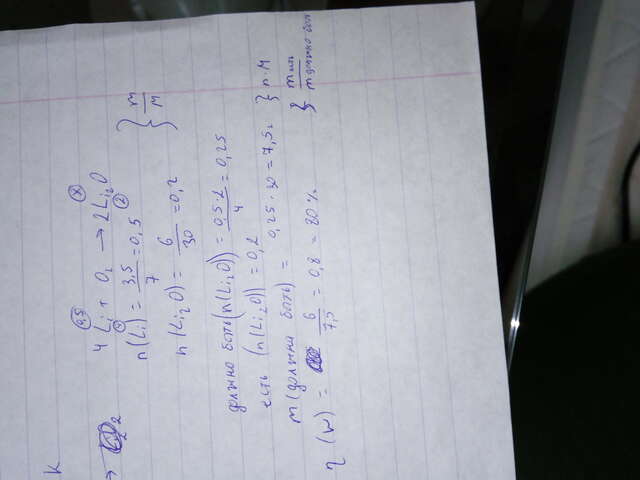 k
→
0,5 x
4Li + O₂ → 2Li₂O
4 2
n(Li) = 3,5/7 = 0,5 } m/M
n(Li₂O) = 6/30 = 0,2
должно быть (n(Li₂O)) = 0,5·2/4 = 0,25
есть (n(Li₂O)) = 0,2
m(должно быть) = 0,25 · 30 = 7,5г } n·M
η (W) = 6/7,5 = 0,8 = 80% } m / m должно быть